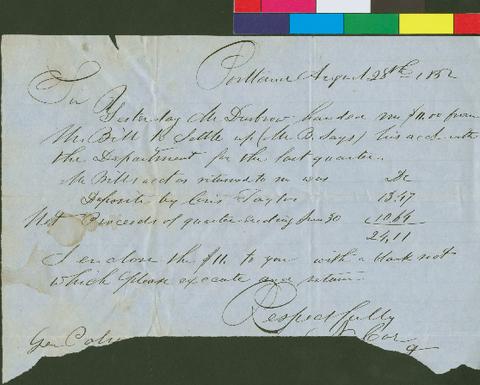 Portland August 28th 1852
Sir
Yesterday Mr handed me $11.00 from
Mr Bill to Settle up (Mr B. Says) his acct with
the Department for the last quarter.
Mr Bill's acct as returned to me was Dr
Deposits by Taylor 13.47
Net Proceeds of quarter ending June 30 10.64
24,11
I enclose the $11. to you with a blank
which please execute and return
Respectfully
Gen